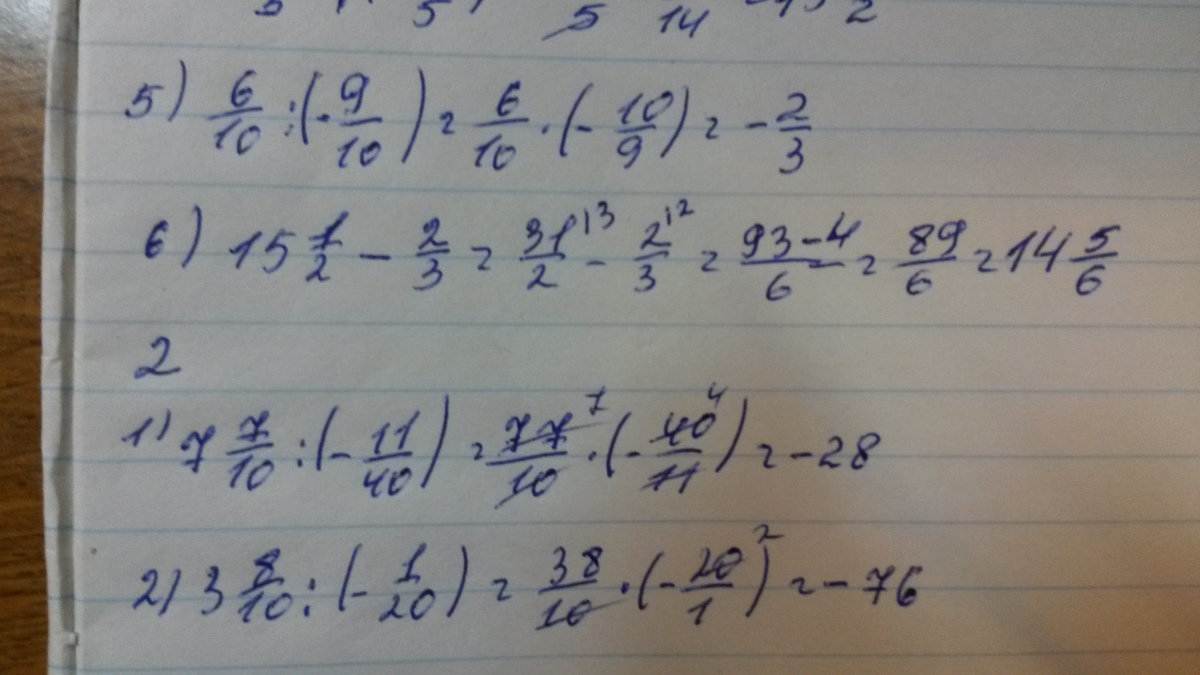 5 14 2
5) 6/10 : (-9/10) = 6/10 · (-10/9) = -2/3
6) 15 1/2 - 2/3 = 31/2 |3 - 2/3 |2 = 93-4/6 = 89/6 = 14 5/6
2
1) 7 7/10 : (-11/40) = 77/10 7 · (-40/11) 4 = -28
2) 3 8/10 : (-1/20) = 38/10 · (-20/1) 2 = -76